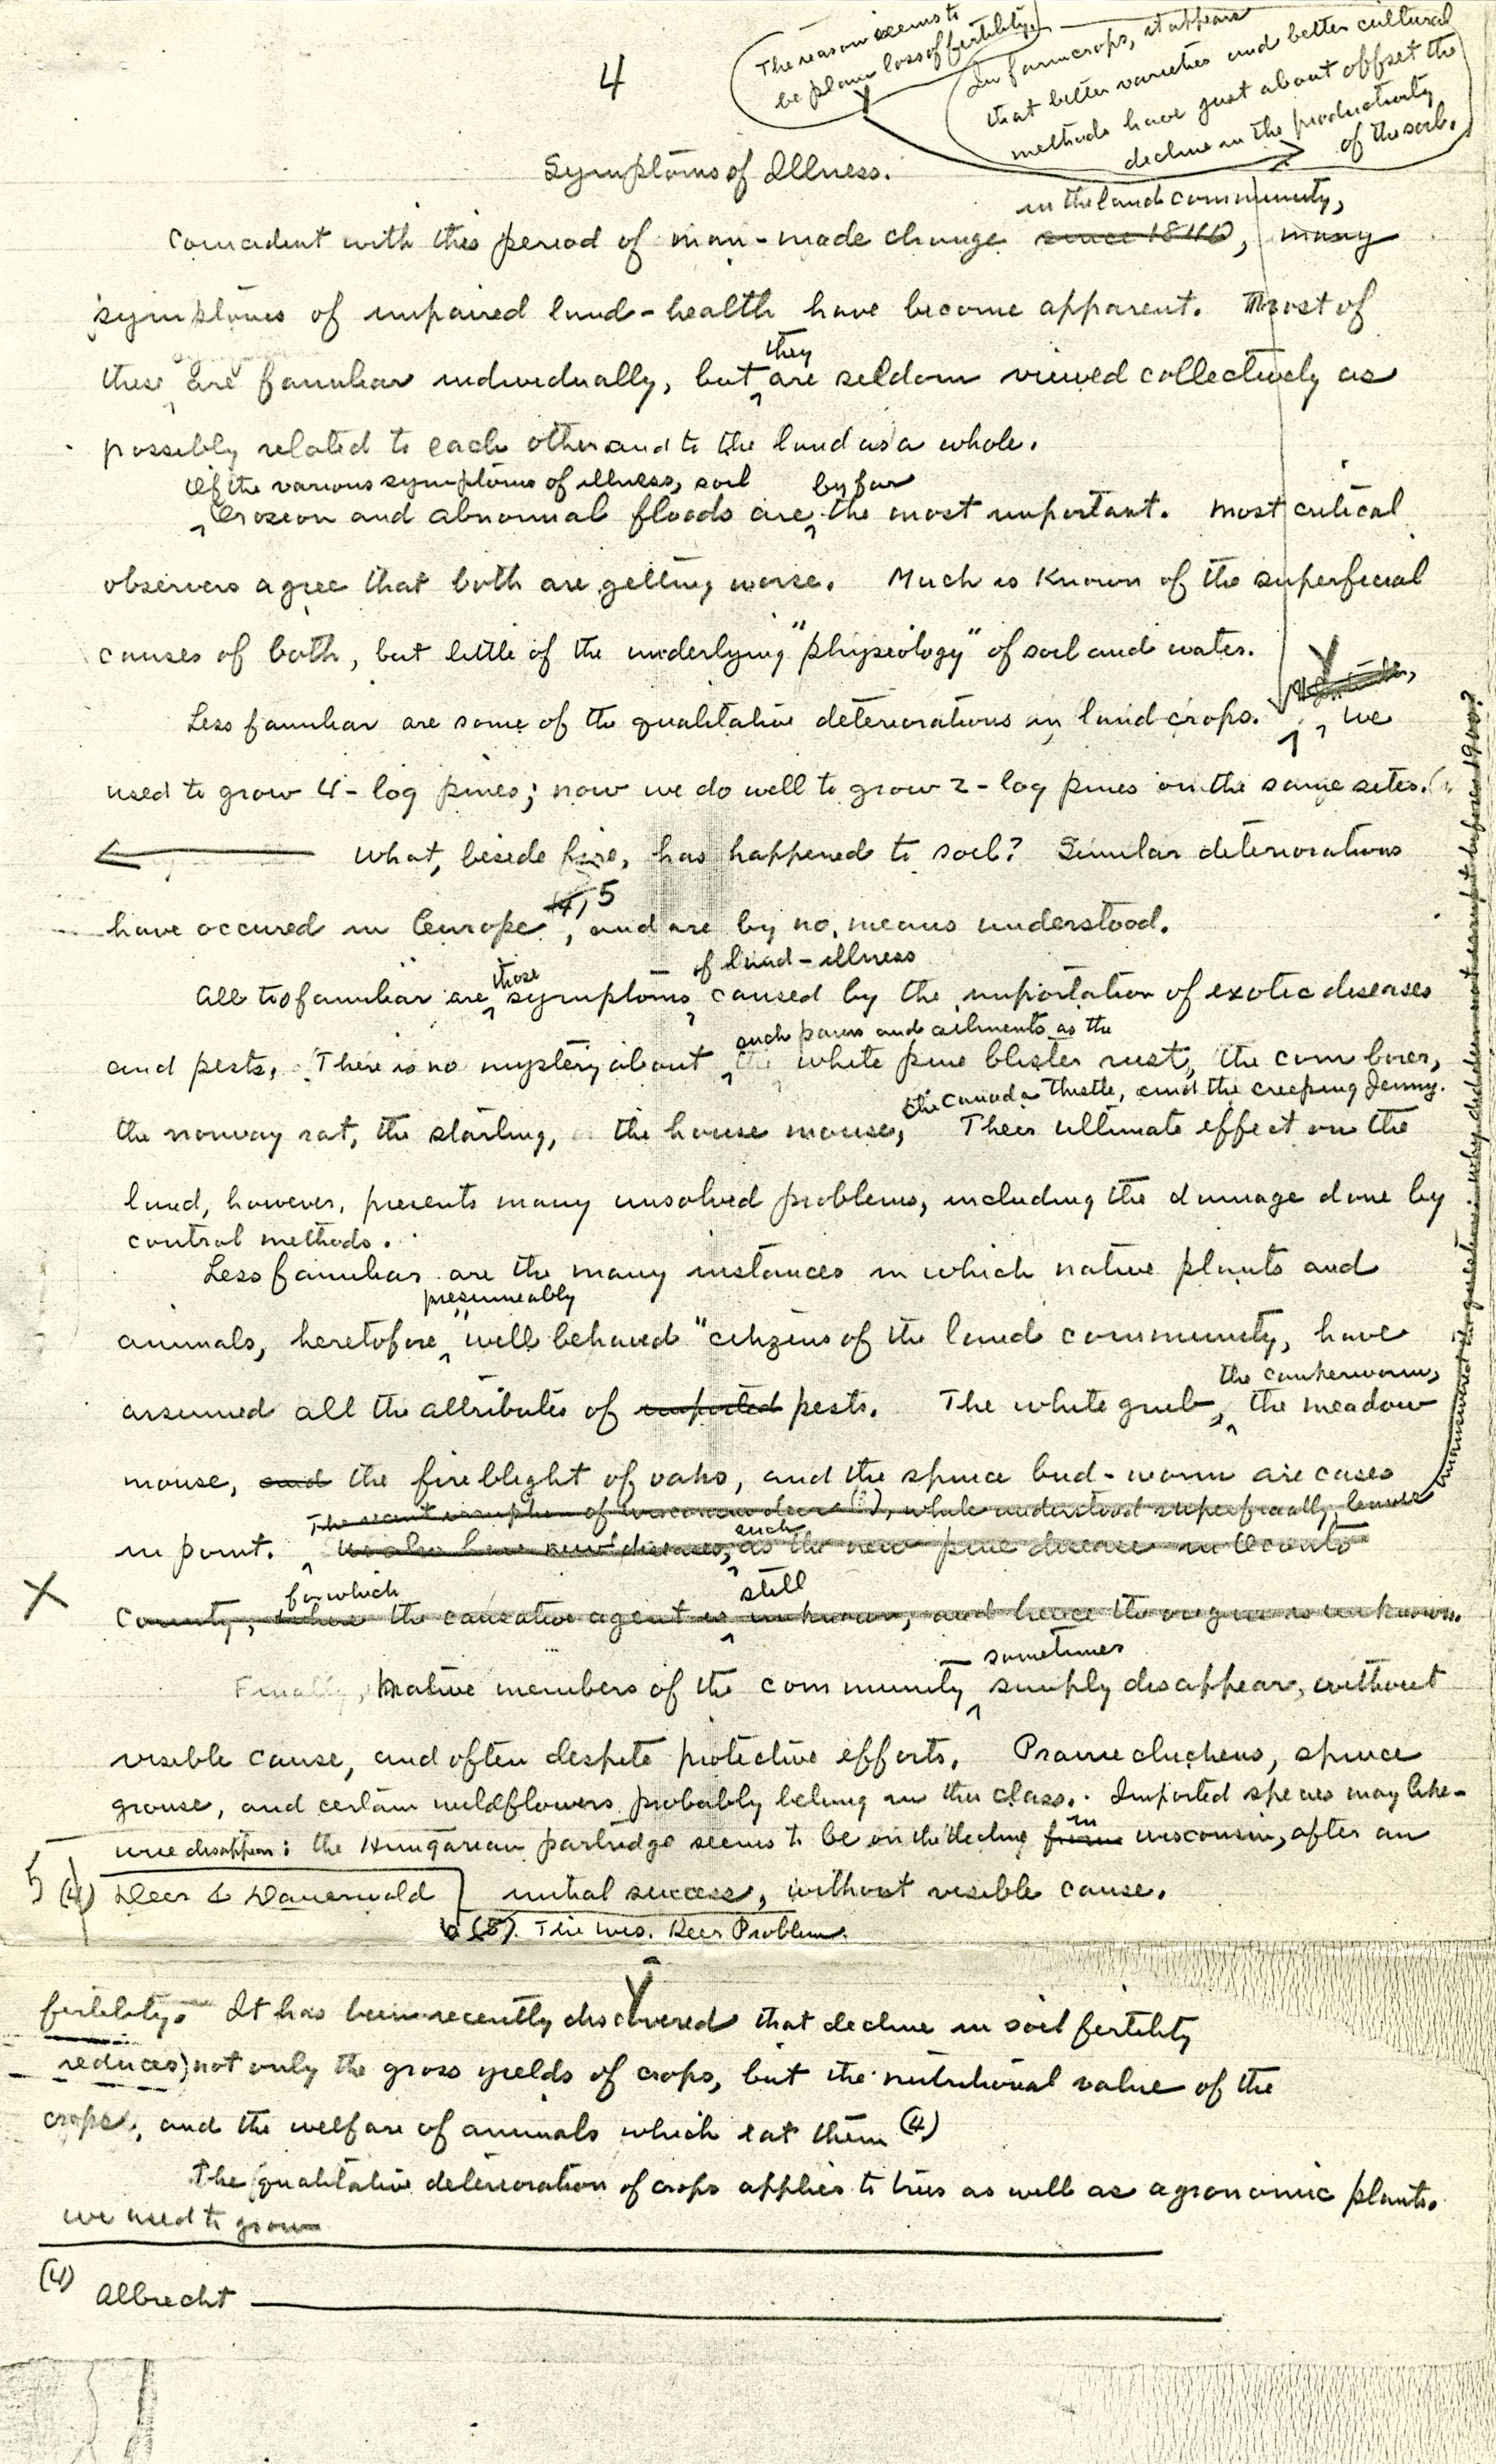 4
The reason seems to
be plain loss of fertility.
In farm crops, it appears
that better varieties and better cultural
methods have just about offset the
decline in the productivity
of the soil.
Symptoms of Illness.
in the land community,
Coincident with this period of man-made change since 1840, many
symptoms of impaired land-health have become apparent. Most of
they
these are familiar individually, but are seldom viewed collectively as
possibly related to each other and to the land as a whole.
Of the various symptoms of illness, soil by far
Erosion and abnormal floods are the most important. Most critical
observers agree that both are getting worse. Much is known of the superficial
causes of both, but little of the underlying "physiology" of soil and water.
Less familiar are some of the qualitative deteriorations in land crops. We
used to grow 4-log pines; now we do well to grow 2-log pines on the same sites.
What, beside fire, has happened to soil? Similar deteriorations
4, 5
have occured in Europe, and are by no means understood.
those of land-illness
All too familiar are symptoms caused by the importation of exotic diseases
such pawns and ailments as the
and pests. There is no mystery about the white pine blister rust, the corn borer,
the Canada thistle, and the creeping Jenny.
the norway rat, the starling, the house mouse, Their ultimate effect on the
land, however, presents many unsolved problems, including the damage done by
control methods.
Less familiar are the many instances in which native plants and
presumeably
animals, heretofore "well behaved" citizens of the land community, have
the cankerworm,
assumed all the attributes of imported pests. The white grub, the meadow
mouse, and the fireblight of oaks, and the spruce bud-worm are cases
The recent irruption of wisconsin deer (5), while understood superficially, leaves
unanswered the question: why did deer not irrupt before 1900?
such
in point. We also have new diseases, as the new pine disease in Oconto
for which still
County, where the causative agent is unknown, and hence the origin is unknown.
sometimes
Finally, native members of the community simply disappear, without
visible cause, and often despite protective efforts. Prairie chickens, spruce
grouse, and certain wildflowers probably belong in this class. Imported species may like-
in
wise disappear: the Hungarian partridge seems to be on the decline from wisconsin, after an
initial success, without visible cause.
5 (4) Deer & Dauerwald
6 (5) The Wis. Deer Problem.
fertility. It has been recently discovered that decline in soil fertility
reduces not only the gross yields of crops, but the nutritional value of the
crops, and the welfare of animals which eat them (4)
The qualitative deterioration of crops applies to trees as well as agronomic plants.
we used to grow
(4) Albrecht